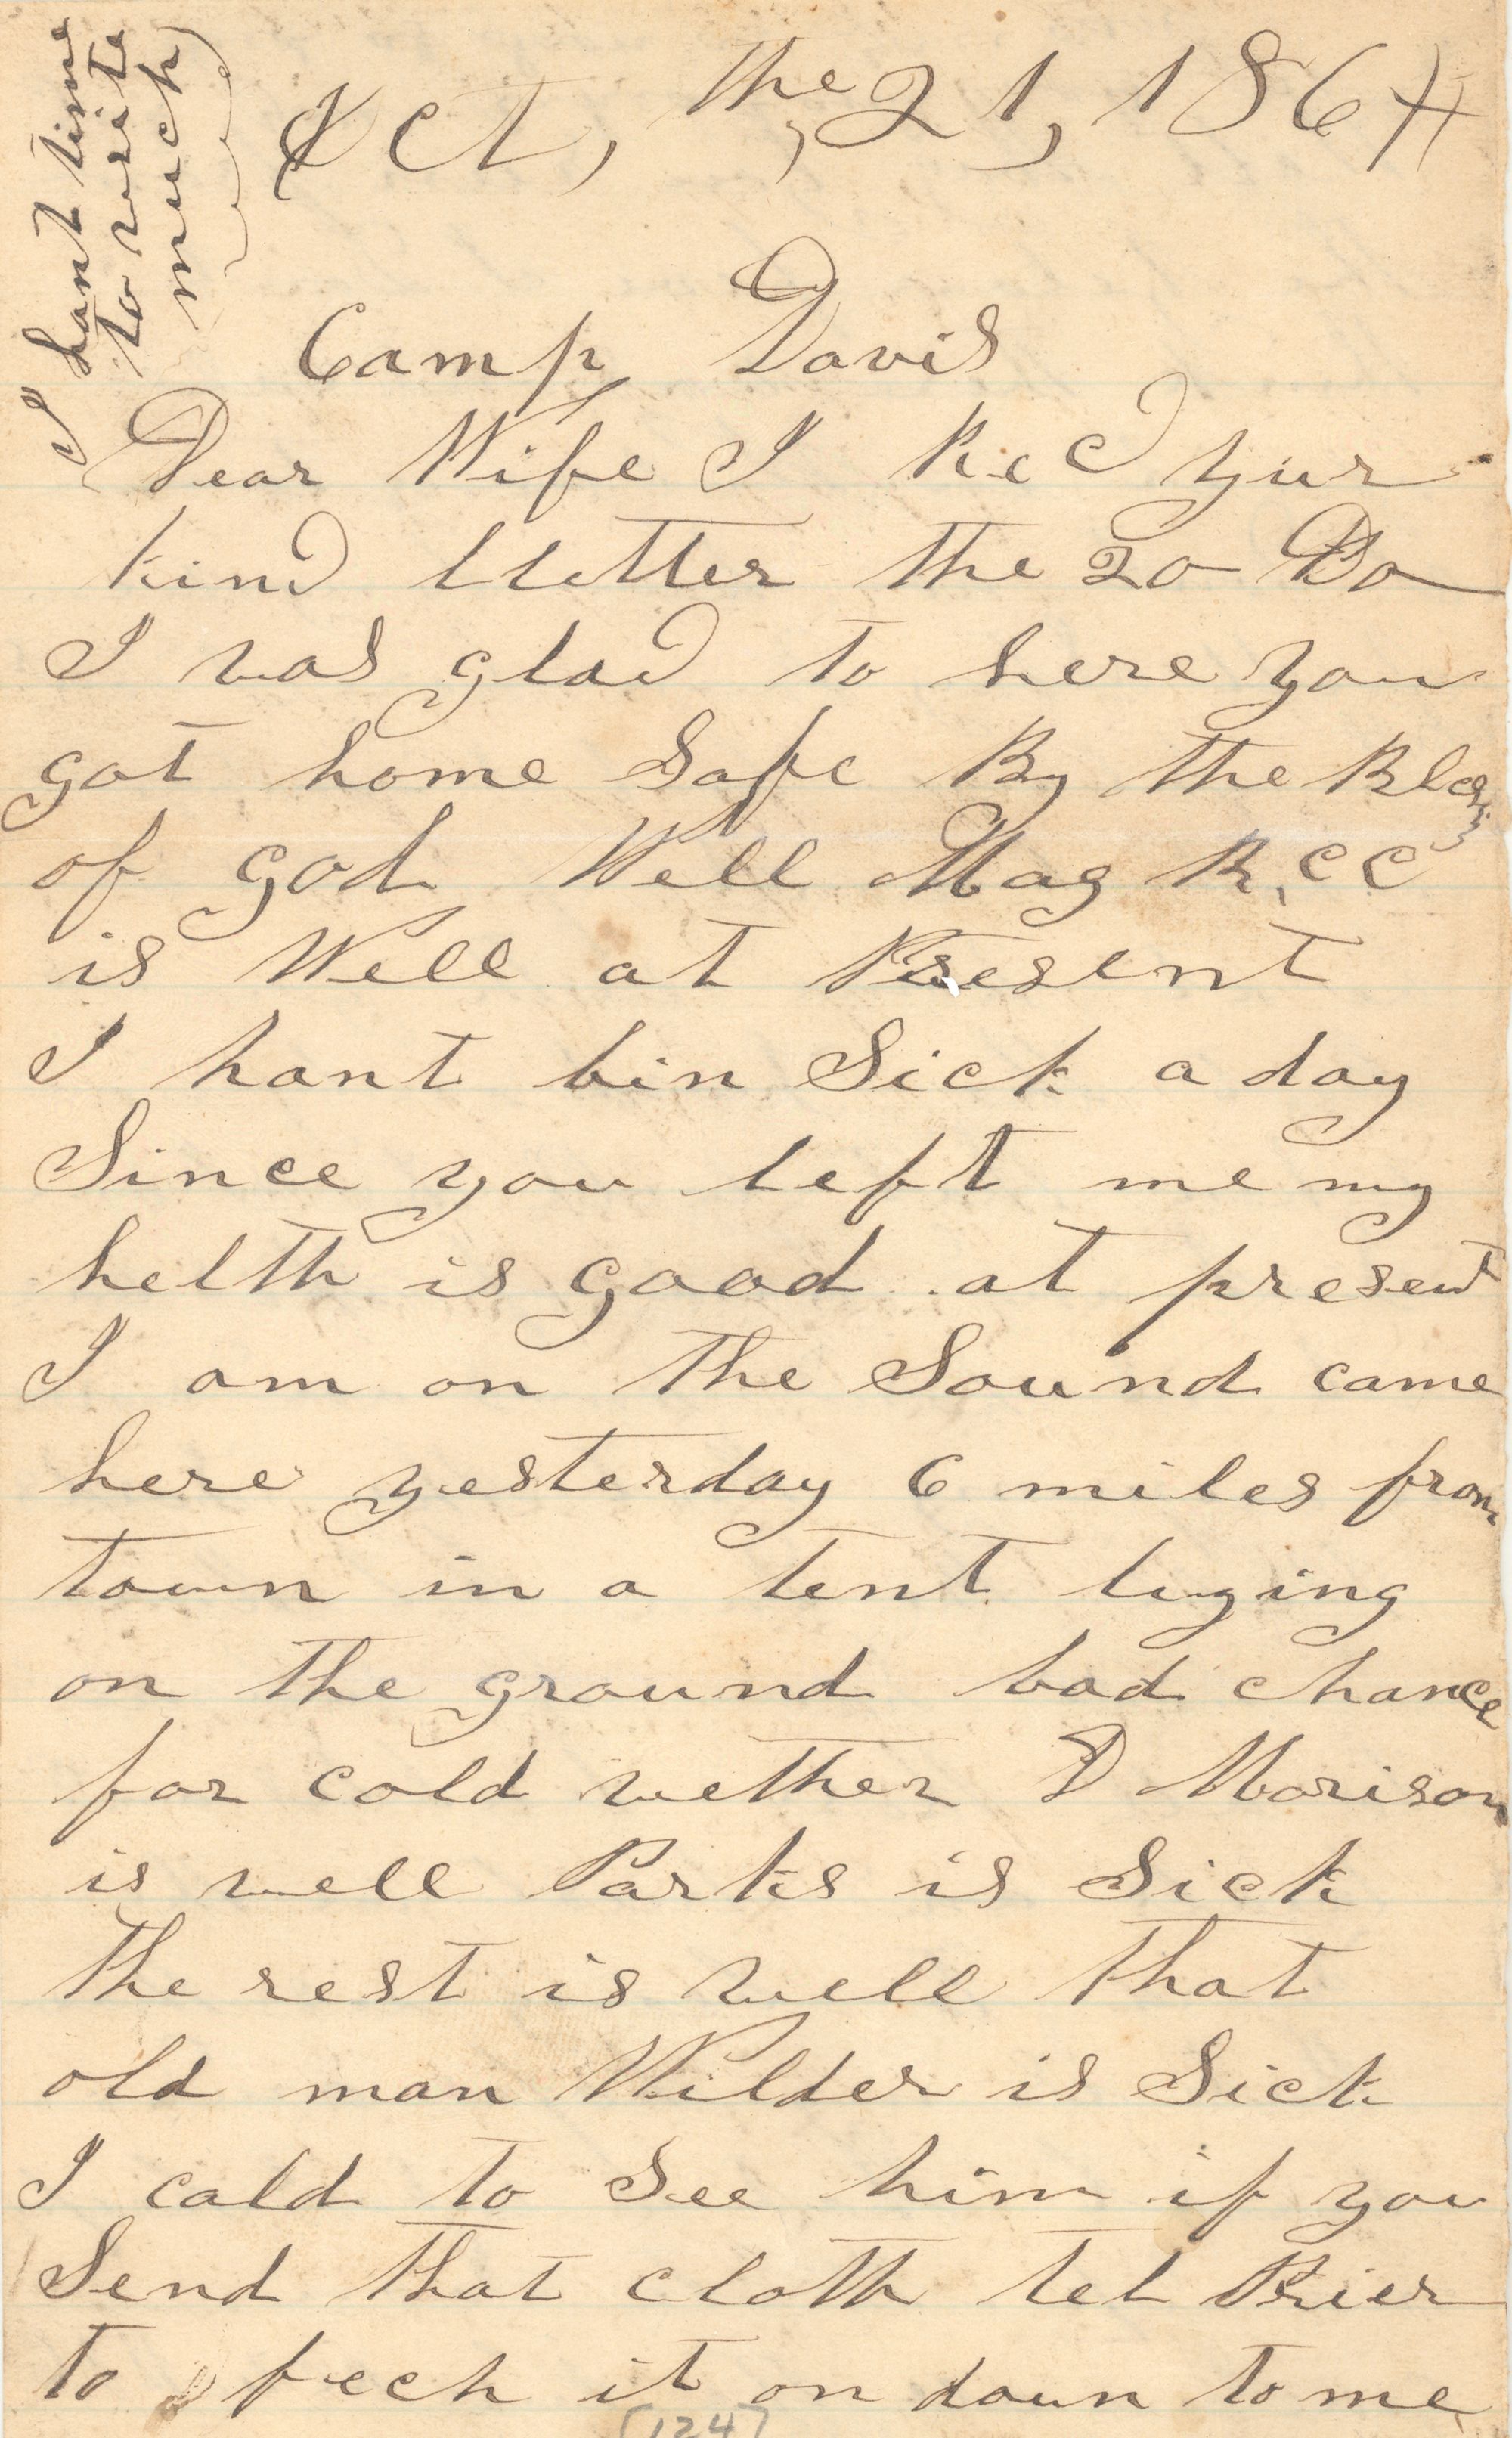 I hant time
to write
much
Oct, the, 21, 1864
Camp Davis
Dear Wife I Recd yur
kind lletter the 20 Do
I was glad to here you
got home Safe By the Bles
of god Well Mag R, CC
is Well at Present
I hant bin Sick a day
Since you left me my
helth is good at present
I am on the Sound came
here yesterday 6 miles from
town in a tent lying
on the ground bad chance
for cold wether D Morison
is well Parks is Sick
the rest is well that
old man Wilder is Sick
I cald to See him if you
Send that cloth tel Prier
to fech it on doun to me
(124)